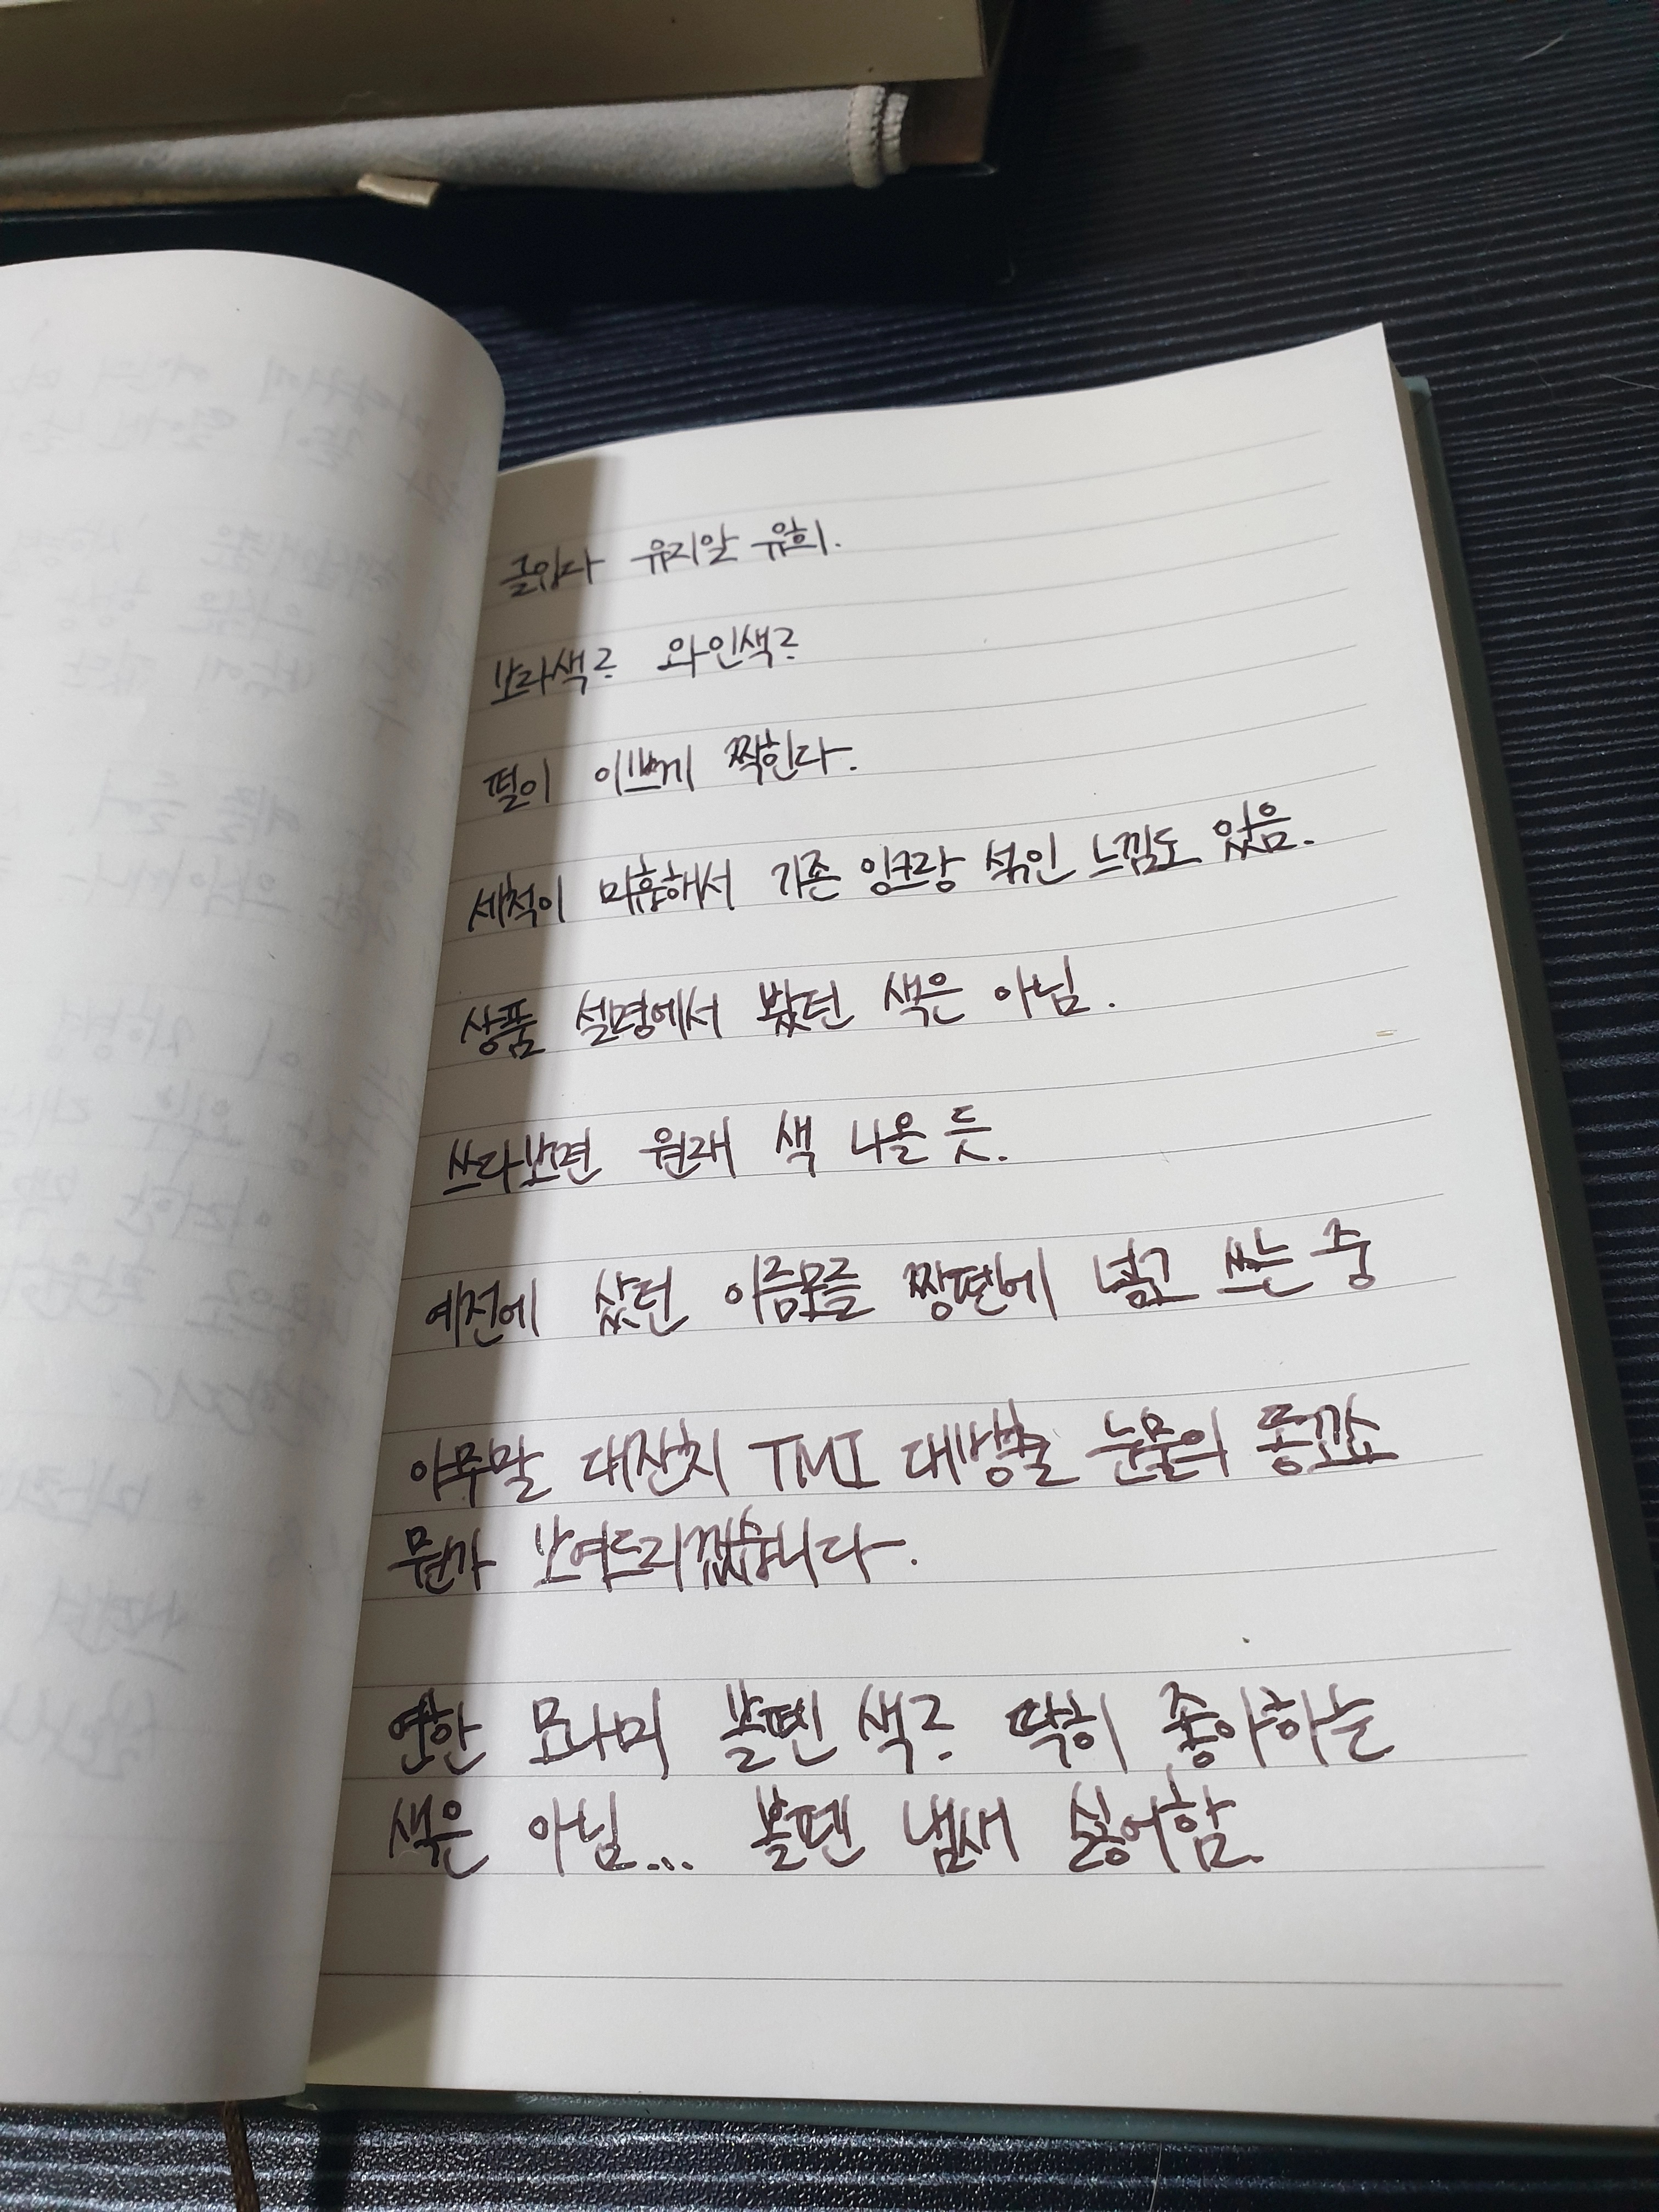 글입다 유지알 유희.
보라색? 와인색?
펄이 이쁘게 찍힌다.
세척이 미흡해서 기존 잉크랑 섞인 느낌도 있음.
상품 설명에서 봤던 색은 아님.
쓰다보면 원래 색 나올 듯.
예전에 샀던 이름모를 짱펜에 넣고 쓰는 중
아무말 대잔치 TMI 대방출 눈물의 똥꼬쇼
뭔가 보여드리겠습니다.
연한 모나미 볼펜 색? 딱히 좋아하는
색은 아닐... 볼펜 냄새 싫어함.